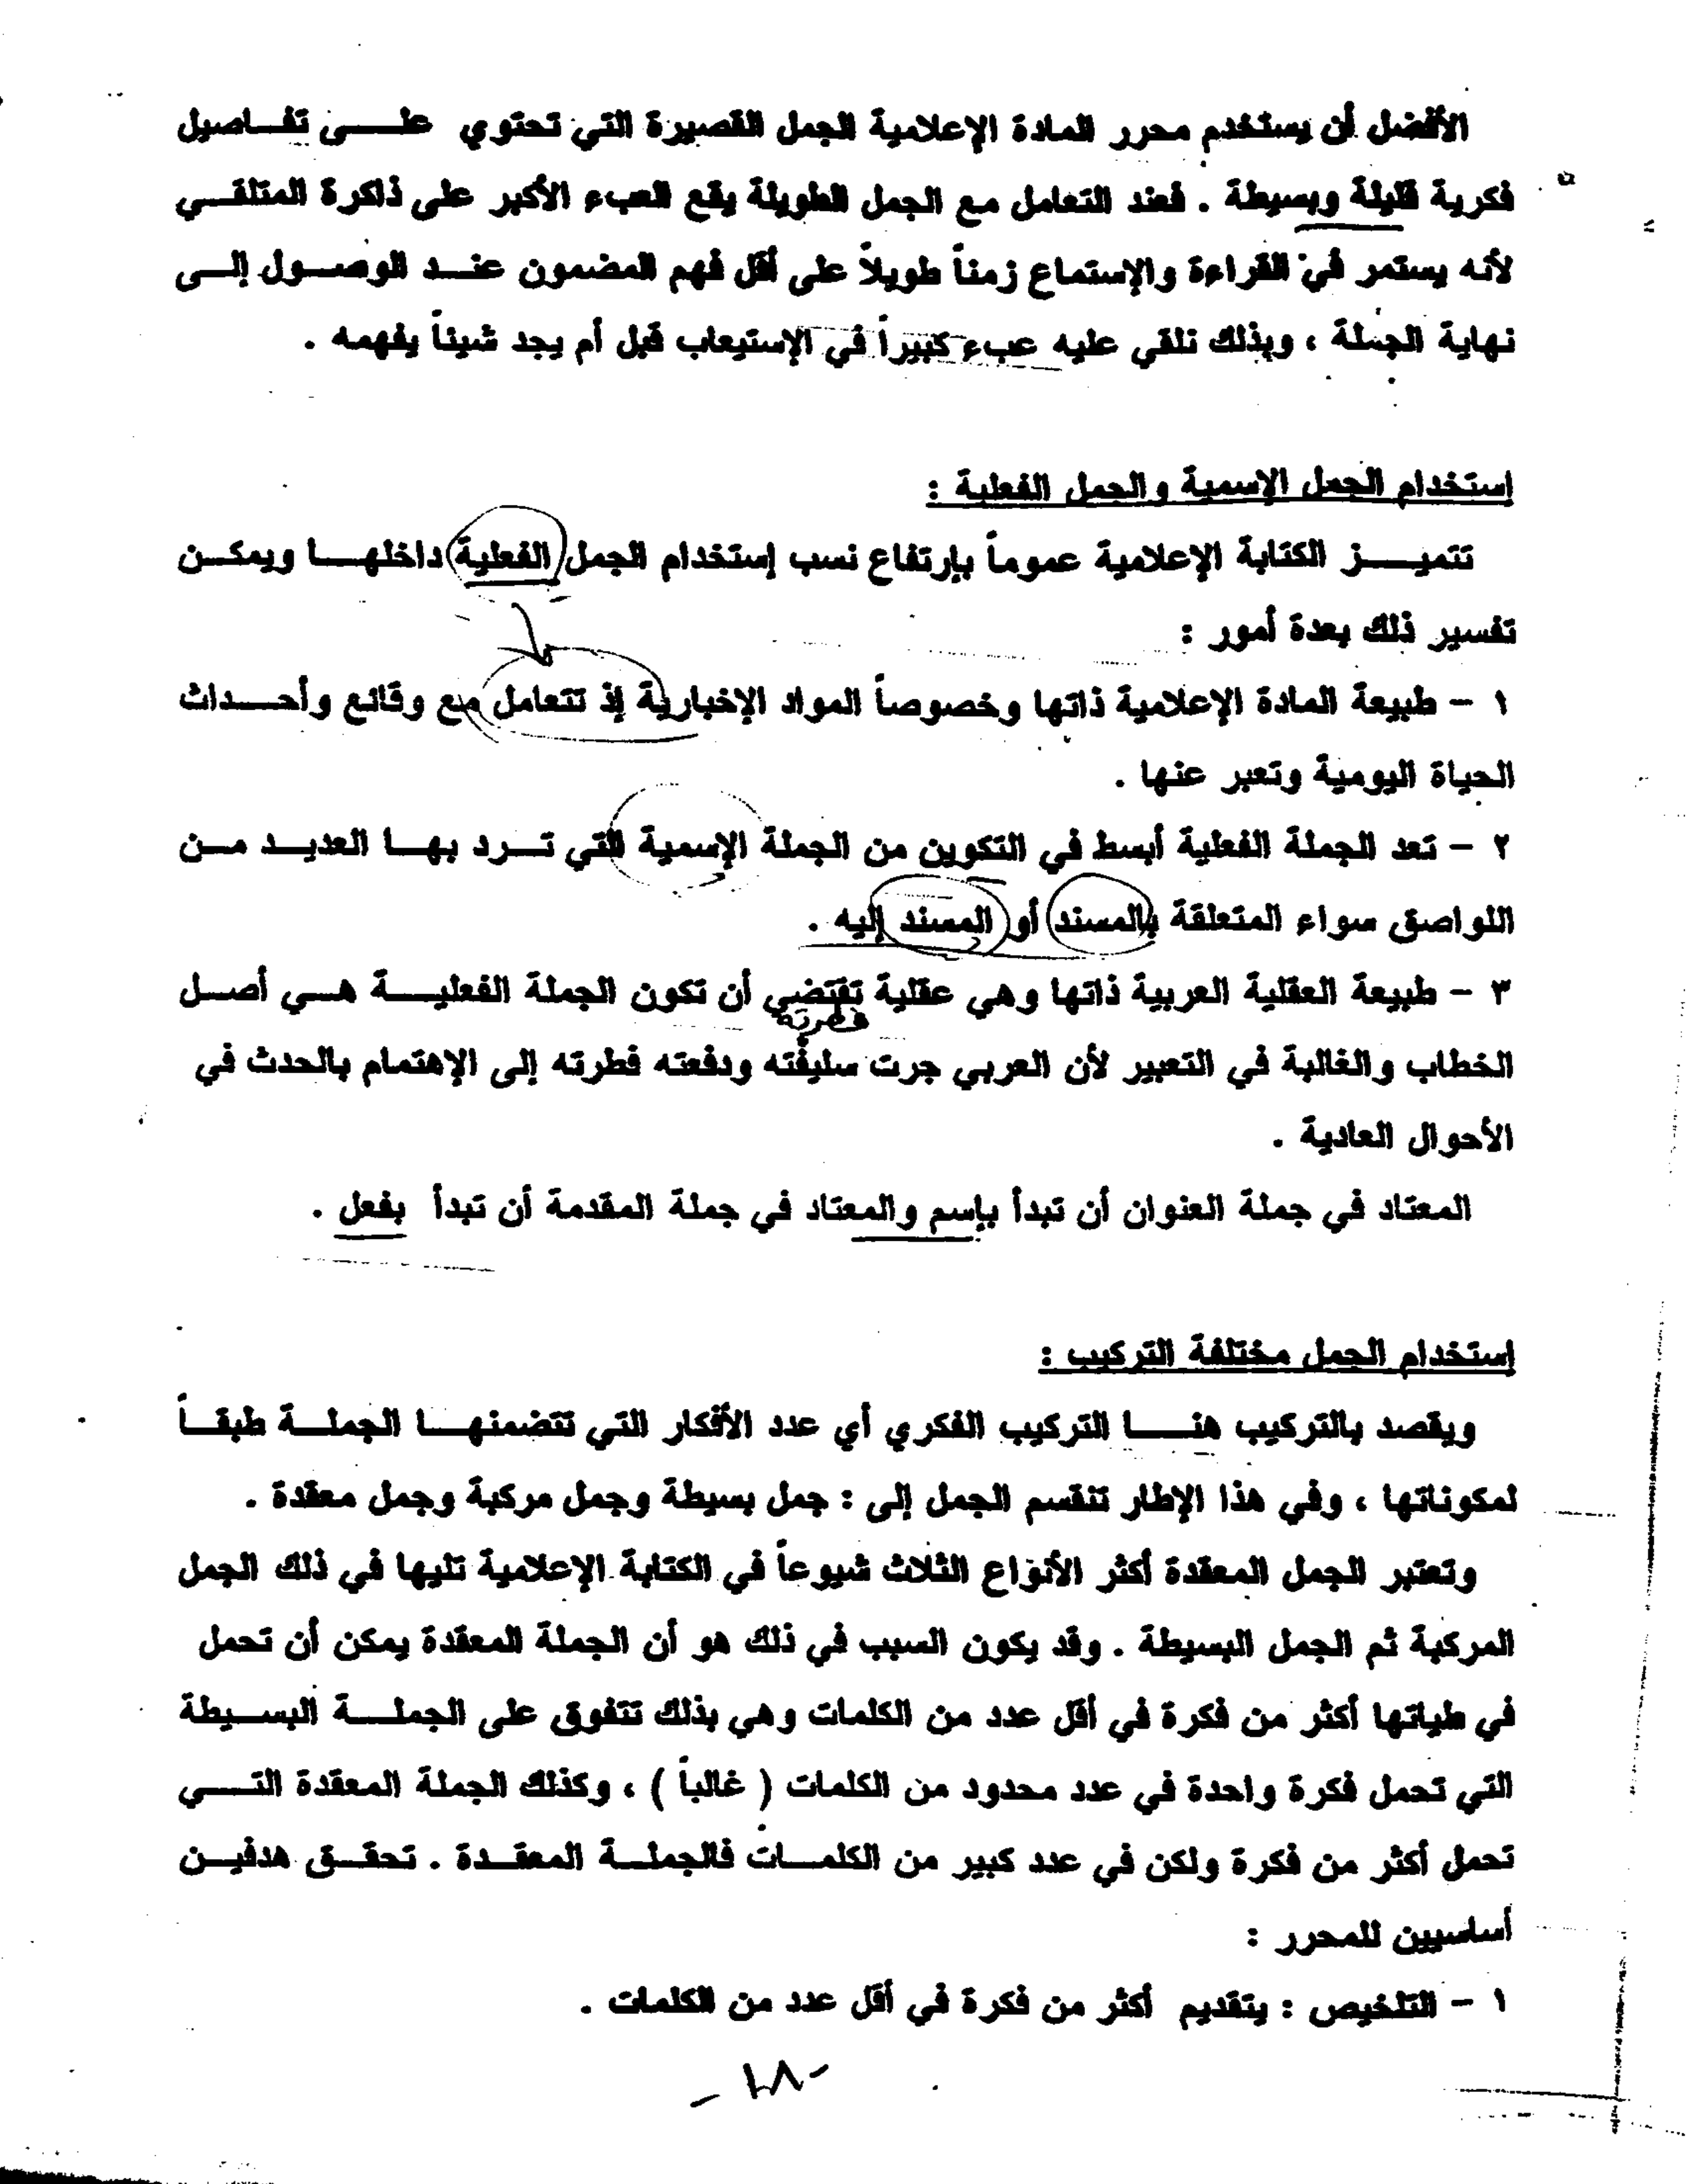 الأفضل أن يستخدم محرر المادة الإعلامية الجمل القصيرة التي تحتوي على تفاصيل
فكرية قليلة وبسيطة . فعند التعامل مع الجمل الطويلة يقع العبء الأكبر على ذاكرة المتلقي
لأنه يستمر في القراءة والإستماع زمناً طويلاً على أقل فهم المضمون عند الوصول إلى
نهاية الجملة ، وبذلك نلقي عليه عبء كبيراً في الإستيعاب قبل أم يجد شيئاً يفهمه .
إستخدام الجمل الإسمية والجمل الفعلية :
تتميز الكتابة الإعلامية عموماً بإرتفاع نسب إستخدام الجمل الفعلية داخلها ويمكن
تفسير ذلك بعدة أمور :
١ - طبيعة المادة الإعلامية ذاتها وخصوصاً المواد الإخبارية إذ تتعامل مع وقائع وأحداث
الحياة اليومية وتعبر عنها .
٢ - تعد الجملة الفعلية أبسط في التكوين من الجملة الإسمية التي ترد بها العديد من
اللواصق سواء المتعلقة بالمسند أو المسند إليه .
٣ - طبيعة العقلية العربية ذاتها وهي عقلية تقتضي أن تكون الجملة الفعلية هي أصل
فطرته
الخطاب والغالبة في التعبير لأن العربي جرت سليقته ودفعته فطرته إلى الإهتمام بالحدث في
الأحوال العادية .
المعتاد في جملة العنوان أن تبدأ بإسم والمعتاد في جملة المقدمة أن تبدأ بفعل .
إستخدام الجمل مختلفة التركيب :
ويقصد بالتركيب هنا التركيب الفكري أي عدد الأفكار التي تتضمنها الجملة طبقاً
لمكوناتها ، وفي هذا الإطار تنقسم الجمل إلى : جمل بسيطة وجمل مركبة وجمل معقدة .
وتعتبر الجمل المعقدة أكثر الأنواع الثلاث شيوعاً في الكتابة الإعلامية تليها في ذلك الجمل
المركبة ثم الجمل البسيطة . وقد يكون السبب في ذلك هو أن الجملة المعقدة يمكن أن تحمل
في طياتها أكثر من فكرة في أقل عدد من الكلمات وهي بذلك تتفوق على الجملة البسيطة
التي تحمل فكرة واحدة في عدد محدود من الكلمات ( غالباً ) ، وكذلك الجملة المعقدة التي
تحمل أكثر من فكرة ولكن في عدد كبير من الكلمات فالجملة المعقدة . تحقق هدفين
أساسيين للمحرر :
١ - التلخيص : يتقديم أكثر من فكرة في أقل عدد من الكلمات .
- ١٨ -